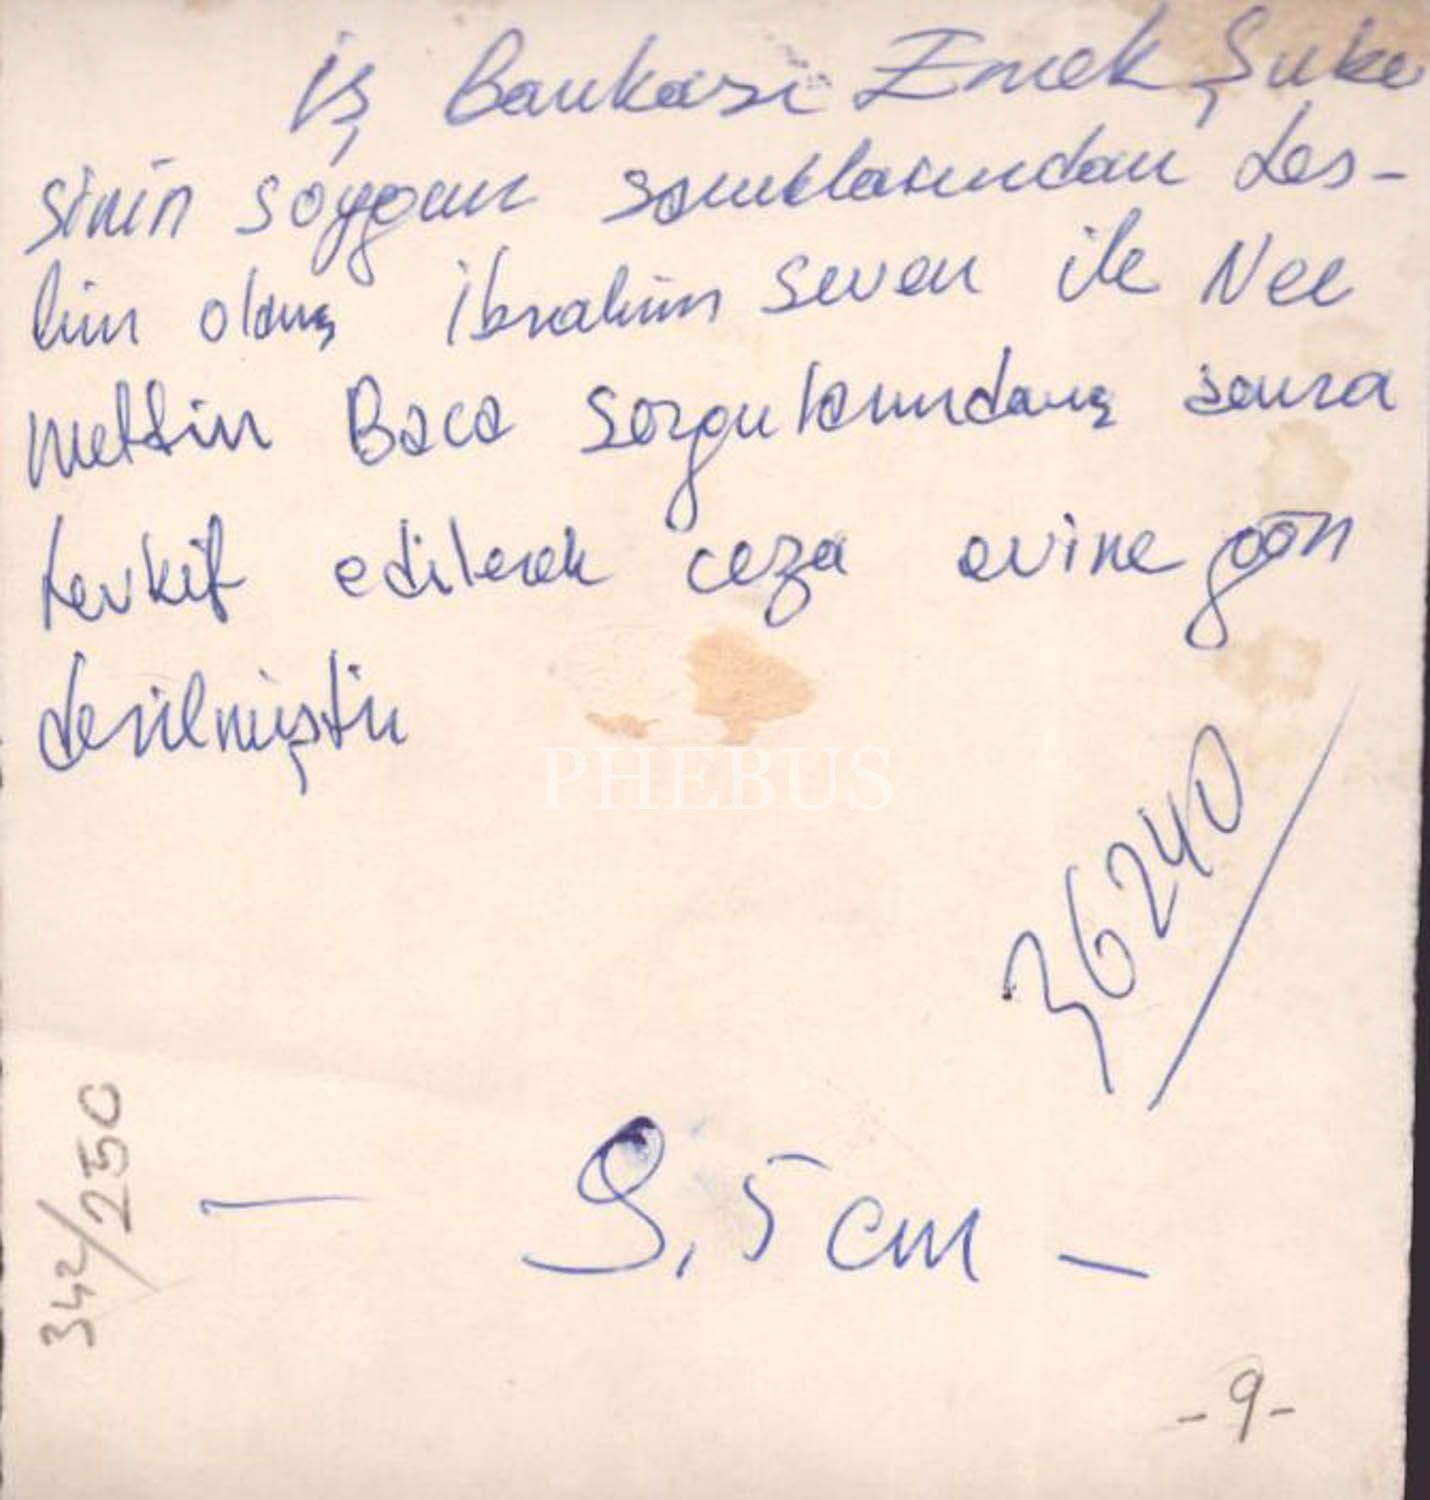 İş Bankası Emek Şube
sinin soygun sanıklarından tes-
lim olan İbrahim Seven ile Nec
mettin Baca sorgularından sonra
tevkif edilerek ceza evine gön
derilmiştir
PHEBUS
36240
342/250
— 9,5 cm —
- 9 -